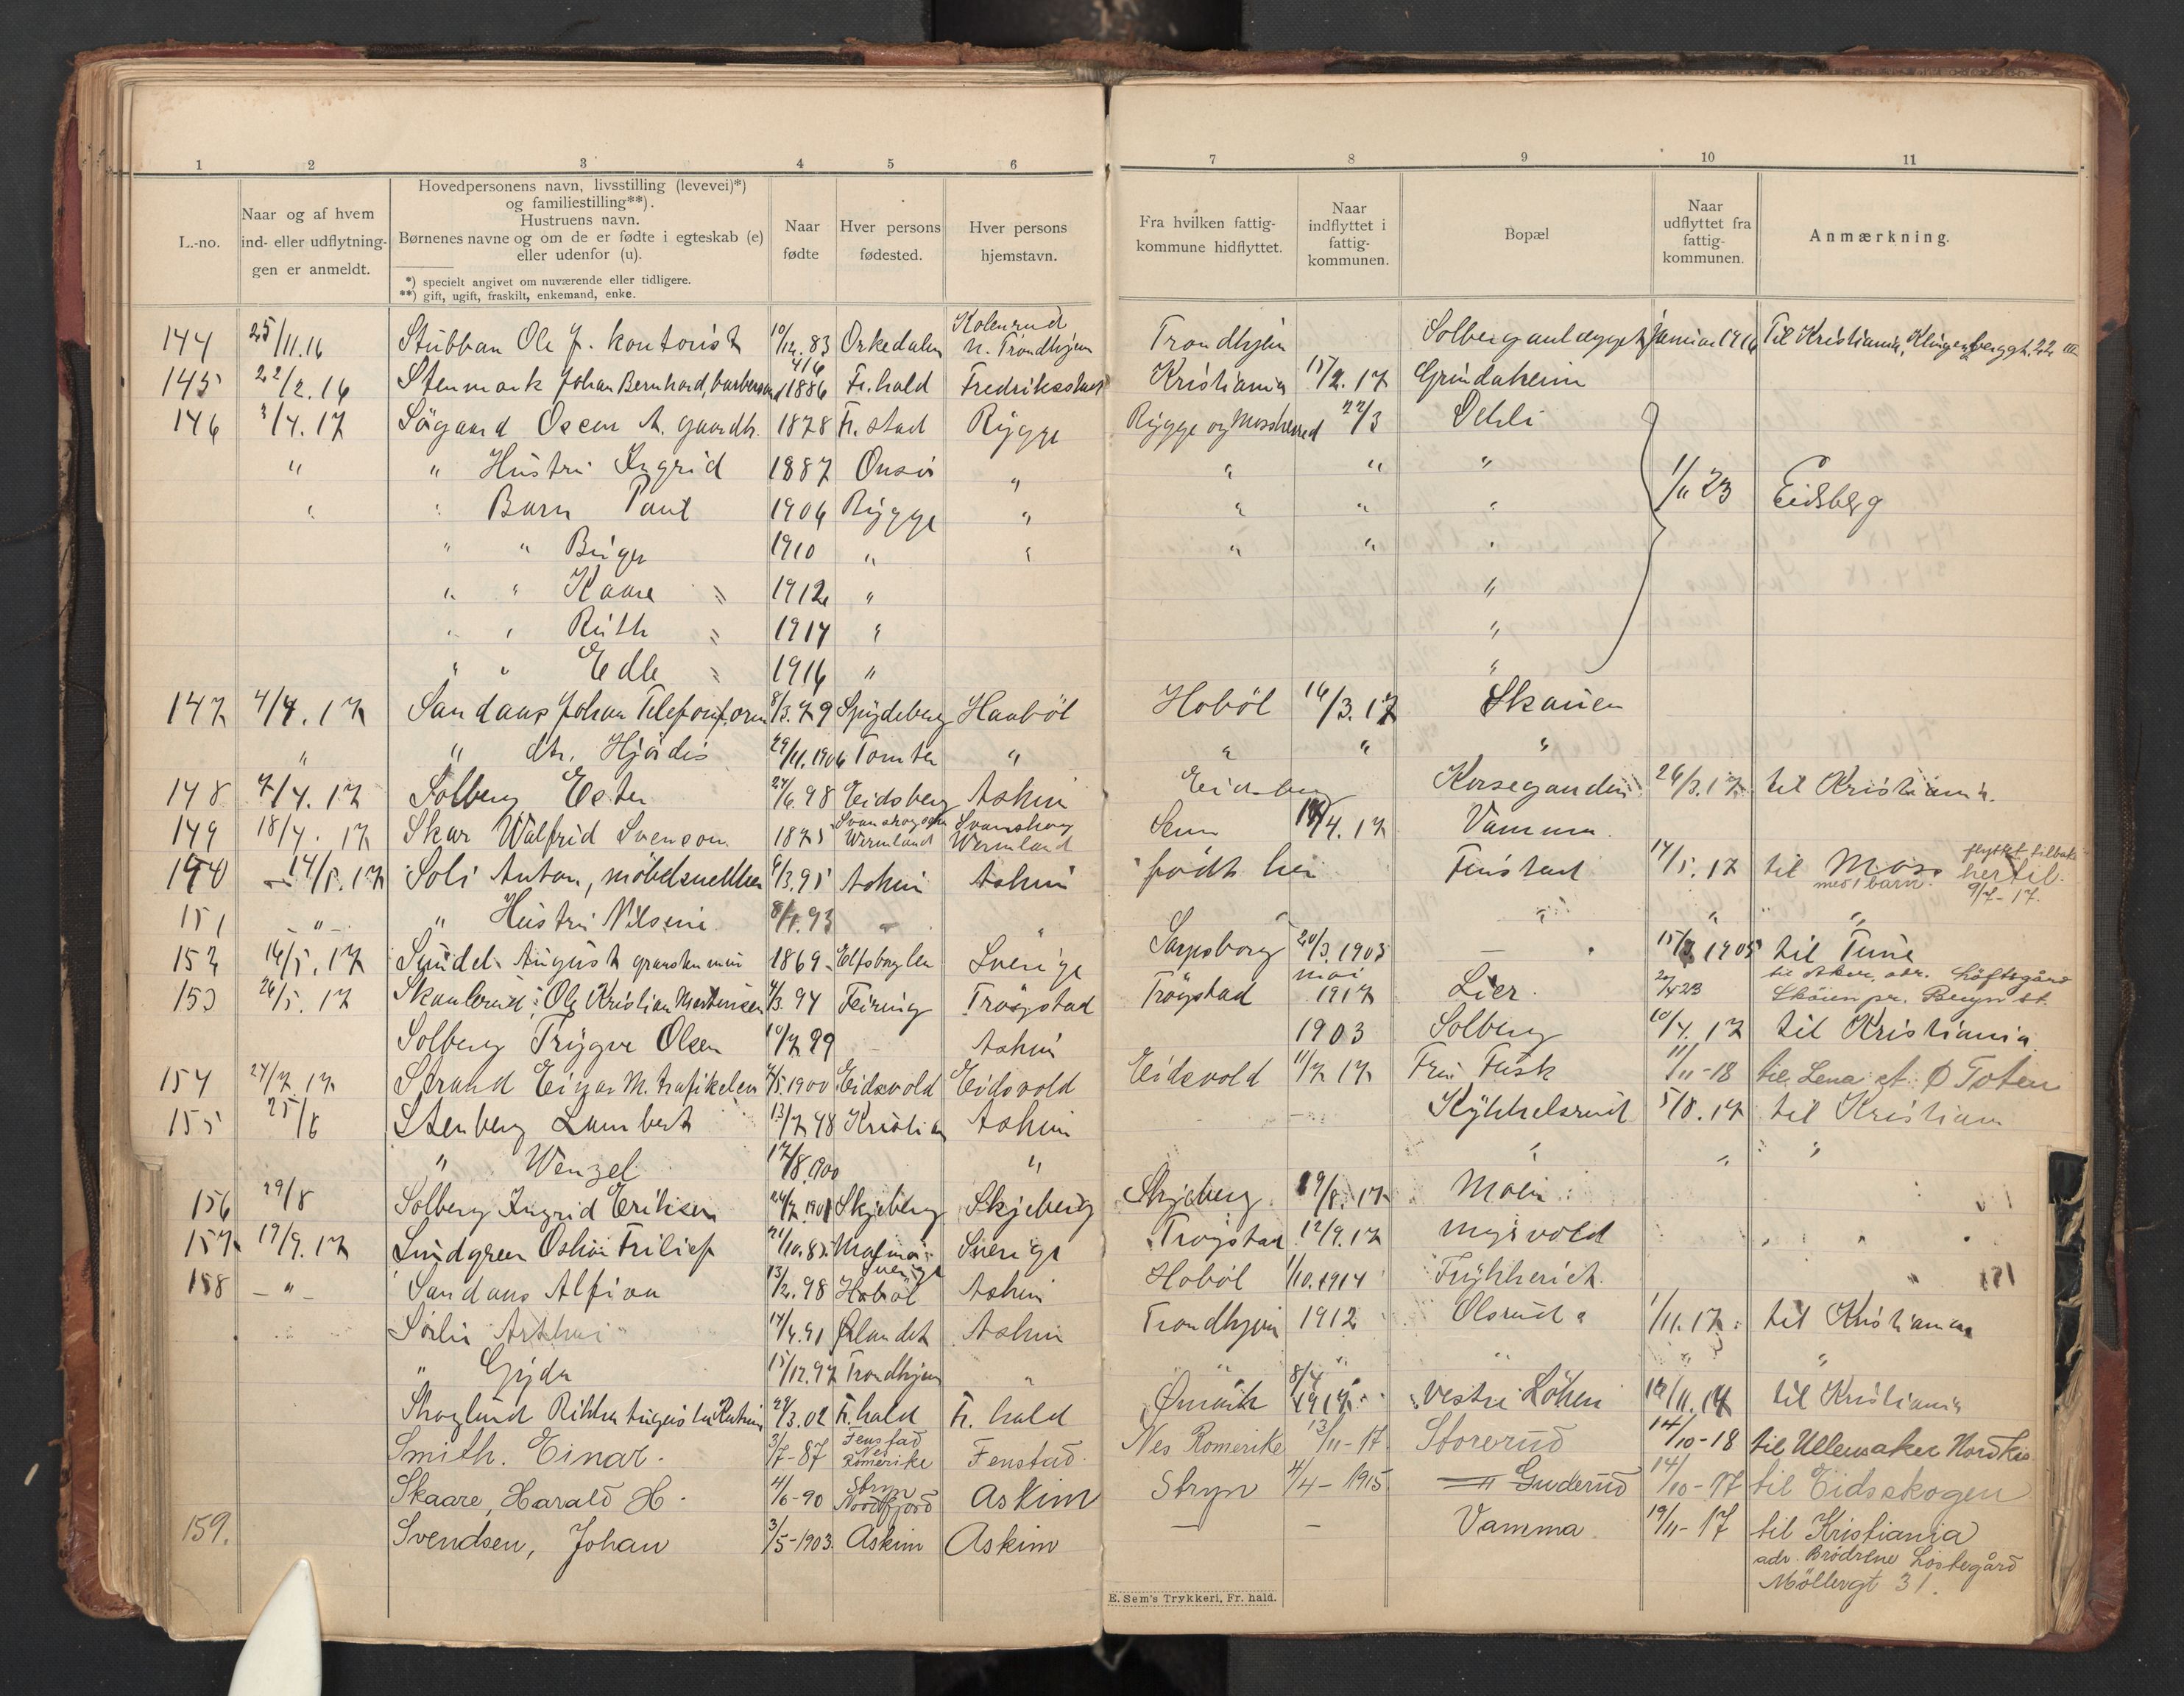 1 2 3 4 5 6 7 8 9 10 11
L.-no.
Naar og af hvem
ind- eller udflytning-
gen er anmeldt.
Hovedpersonens navn, livsstilling (levevei)*)
og familiestilling**).
Hustruens navn.
Børnenes navne og om de er fødte i egteskab (e)
eller udenfor (u).
*) specielt angivet om nuværende eller tidligere.
**) gift, ugift, fraskilt, enkemand, enke.
Naar
fødte
Hver persons
fødested.
Hver persons
hjemstavn.
Fra hvilken fattig-
kommune hidflyttet.
Naar
indflyttet i
fattig-
kommunen.
Bopæl
Naar
udflyttet fra
fattig-
kommunen.
Anmærkning.
144 25/11.16 Stubban Ole J. kontorist 10/12.83 Orkedalen N. Trondhjem Trondhjem Solberganlægget januar 1916 Til Kristiania, Klingenberggt. 22 III
145 22/2.16 Stenmark Johan Bernhard, 4/6 1886 Fr.hald Fredrikshald Kristiania 15/2.17 Grindaheim
146 3/4.17 Sögaard Oscar A. gaardb. 1878 Fr.stad Rygge Rygge og Mossherred 22/3 Oehli
" " Hustru Ingrid 1887 Onsö " " " " 1/11 23 Eidsberg
" " Barn Paul 1906 Rygge " " " "
" " Birger 1910 " " " " "
" " Kaare " 1912 " "
" " Ruth " 1914 " "
" " Edle " 1916 " "
147 4/4.17 Sandaas Johan Telefonform 8/3.79 Spydeberg Haaböl Hoböl 16/3.17 Skauen
" " dtr. Hjördis 29/11.1906 Tomter " " " "
148 7/4.17 Solberg Ester 27/6.98 Eidsberg Askim Eidsberg Korsegaarden 26/3.17 til Kristiania
149 18/4.17 Skar Walfrid Svenson 1875 Svanskog Wermland Svanskog Wermland 17/4.17 Vamma
150 14/5.17 Soli Anton, möbelsnekker 6/3.95 Askim Askim født her Finstad 14/5.17 til Moss med 1 barn. flyttet tilbake hertil 9/7-17.
151 " " Hustru Nilsine 8/1.93 " " " " "
152 16/5.17 Sundel August 1869 Elfsborglen Sverige Sarpsborg 20/3.1903 — 15/2 1905 til Tune
153 26/5.17 Skanlerud, Ole Kristian Mortensen 7/3.94 Feiring Trögstad Trögstad mai 1917 Lier 20/4 23 til Aker, adr. Löftegård Skøien pr. Bryn st.
Solberg Trygve Olsen 10/7 99 — Askim 1903 Solberg 10/4.17 til Kristiania
154 24/7.17 Strand Einar M. trafikelev 7/5.1900 Eidsvold Eidsvold Eidsvold 11/7 17 Fru Fusk 11/11-18 til Lena st. Ø Toten
155 25/6 Stenberg Lambert 13/7.48 Kristian Askim Kykkelsrud 5/8.17 til Kristiania
" Wenzel 17/8.900 " " " "
156 29/8 Solberg Ingrid Eriksen 24/7.1901 Skjeberg Skjeberg Skjeberg 19/8.17 Moen
157 19/9.17 Lindgren Oskar Frilief 21/10.85 Malmö Sverige Sverige Trögstad 12/9.17 Myrvold
158 — " — Sandaas Alfiva 13/2.98 Hoböl Askim Hoböl 1/10.1914
Sörli Arthur 14/4.91 Ørlandet Askim Trondhjem 1912 Olsrud 1/11.17 til Kristiania
" Gyda 15/12.97 Trondhjem " " " " " "
Skoglund Rikka Augusta 29/3.02 Fr.hald Fr. hald Ømark 8/4 1917 Vestre Löken 16/11.17 til Kristiania
Smith. Einar. 3/7-87 Fenstad Nes Romerike Fenstad. Nes Romerike 13/11-17 Storerud 14/10-18 til Ullensaker
Skaare, Harald H. 4/6-90 Stryn Nordfjord Askim Stryn 4/4-1915 Guderud 14/10-17 til Eidsskogen
159. Svendsen, Johan 3/5-1903 Askim Askim — — Vamma 19/11-17 til Kristiania
adr. Brödrene Løstegård
Möllergt 31.
E. Sem's Trykkeri, Fr. hald.